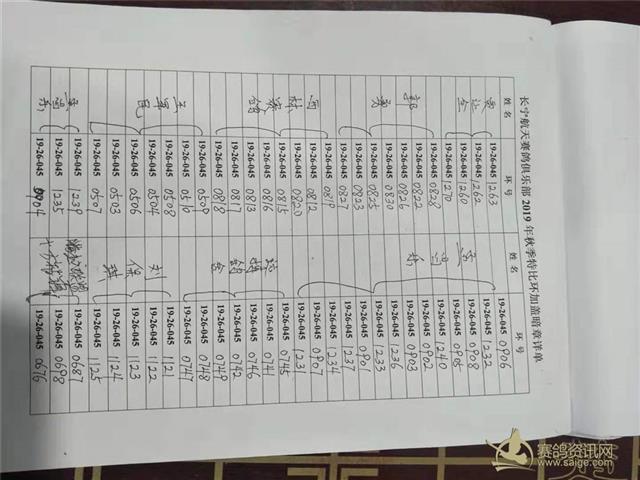 长宁航天赛鸽俱乐部 2019 年秋季特比环加盖暗章详单
姓名 环号 姓名 环号
19-26-045 1263 19-26-045 0906
19-26-045 1262 19-26-045 1232
19-26-045 1260 19-26-045 0908
19-26-045 1270 19-26-045 0905
19-26-045 0828 19-26-045 1240
19-26-045 0822 19-26-045 0902
郭 19-26-045 0826 19-26-045 0903
19-26-045 0830 19-26-045 1236
勇 19-26-045 0825 19-26-045 1233
19-26-045 0823 19-26-045 0901
19-26-045 0827 19-26-045 1237
19-26-045 0819 19-26-045 1234
19-26-045 0812 19-26-045 0907
林 19-26-045 0820 19-26-045 1231
19-26-045 0815 19-26-045 0745
19-26-045 0816 19-26-045 0741
19-26-045 0813 19-26-045 0746
19-26-045 0817 鸽 19-26-045 0742
19-26-045 0818 舍 19-26-045 0749
19-26-045 0509 19-26-045 0748
王 19-26-045 0510 19-26-045 0747
军 19-26-045 0508 19-26-045 1121
民 19-26-045 0504 刘 19-26-045 1122
19-26-045 0506 保 19-26-045 1123
19-26-045 0503 琪 19-26-045 1124
19-26-045 0507 19-26-045 1125
19-26-045 1239 19-26-045 0687
19-26-045 1235 19-26-045 0698
19-26-045 0904 19-26-045 0676
赛鸽资讯网
www.saige.com